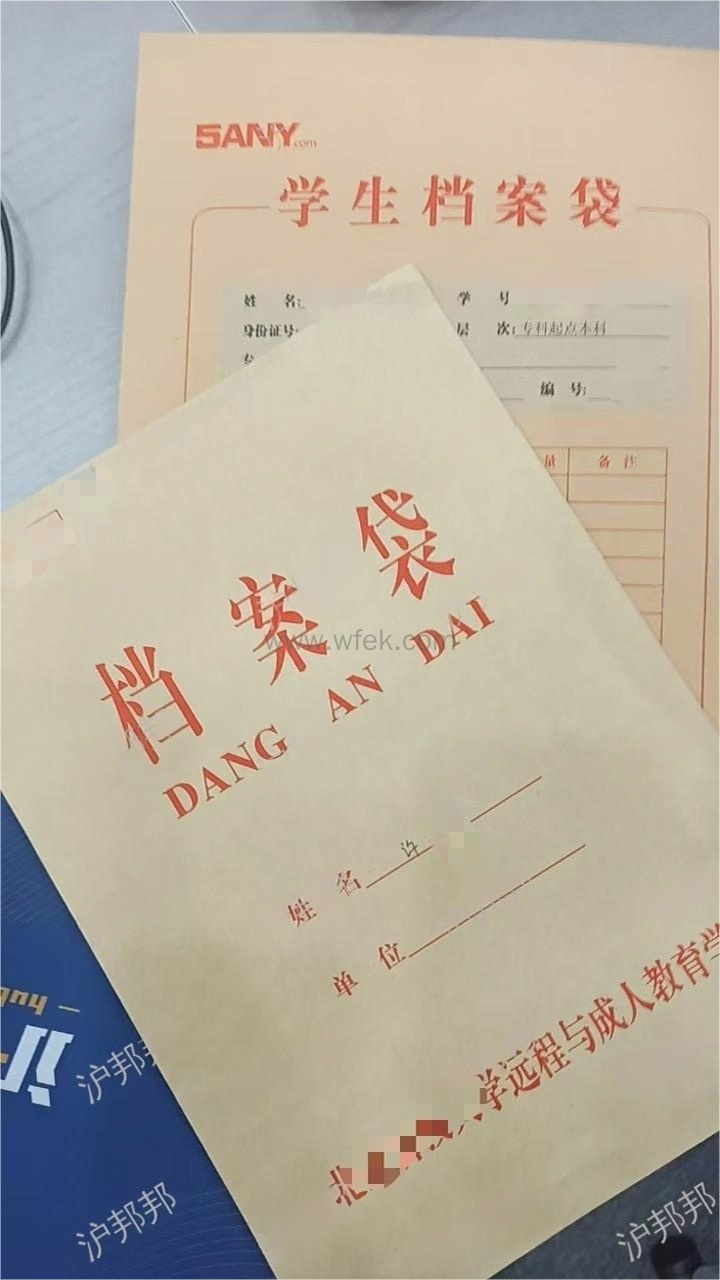 SANY.com
学生档案袋
姓 名:
学 号
身份证号:
层 次: 专科起点本科
编 号:
量 备注
档案袋
DANG AN DAI
www.wfek.com
姓 名 许
单 位
北 大学远程与成人教育学
沪邦邦
沪邦邦
沪邦邦